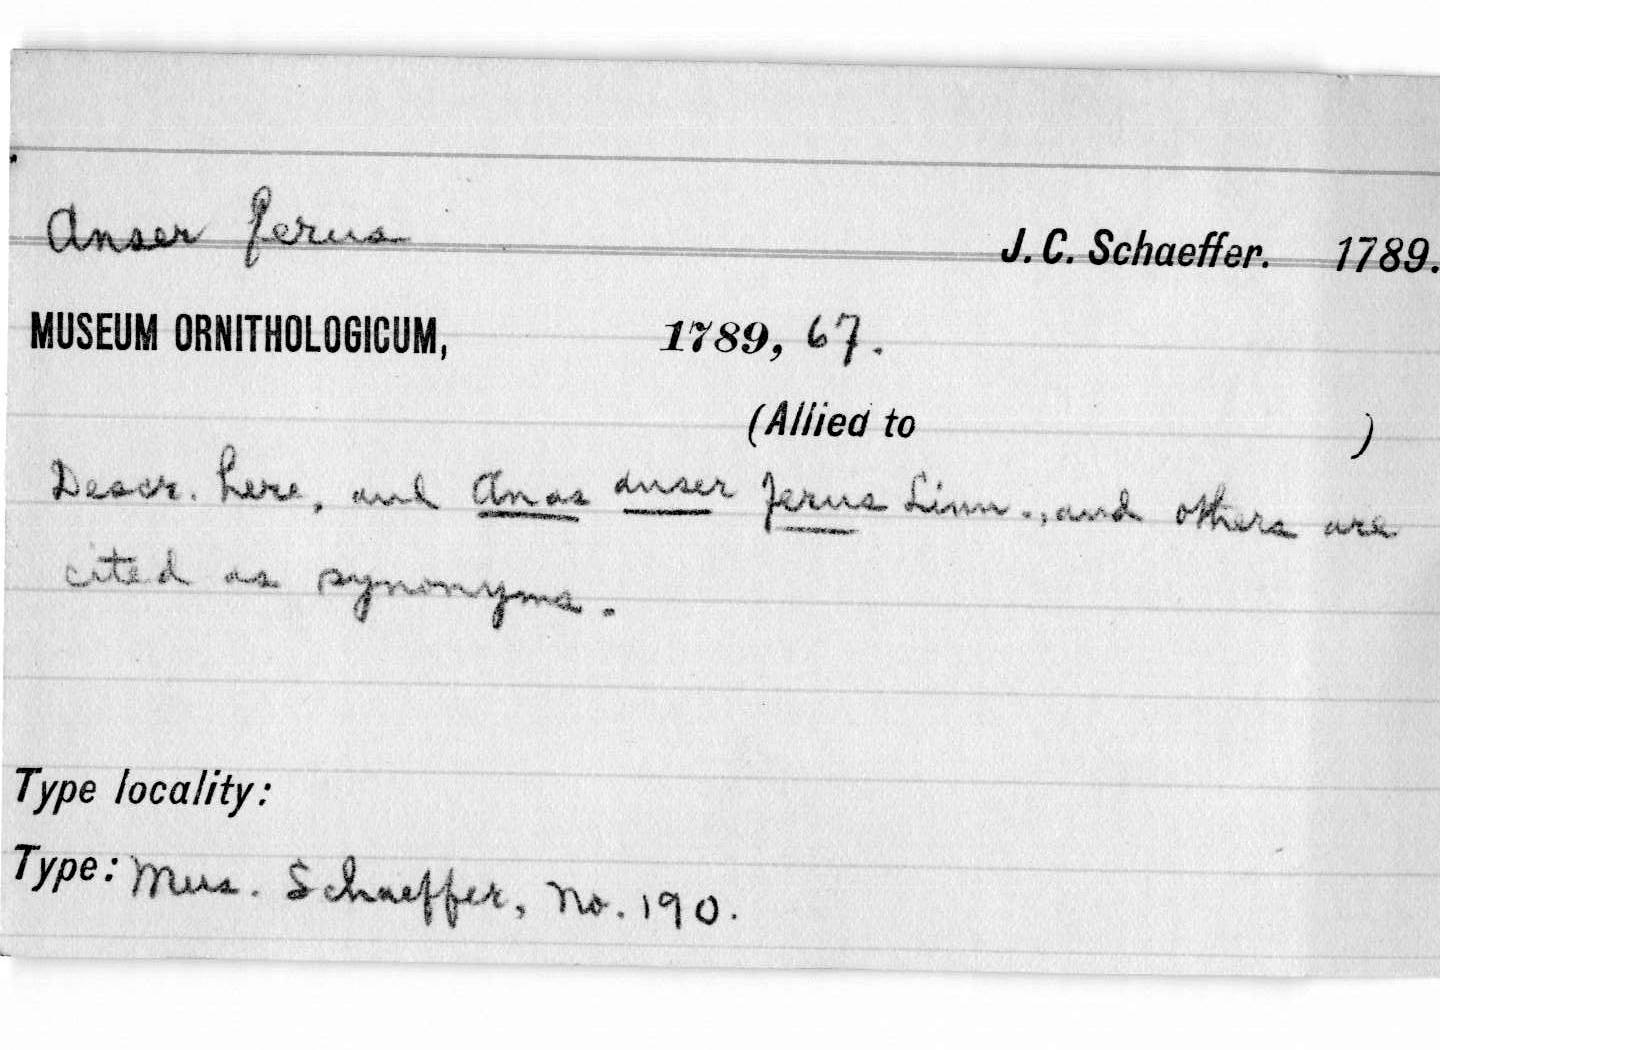 Anser ferus J. C. Schaeffer. 1789.
MUSEUM ORNITHOLOGICUM, 1789, 67.
(Allied to )
Descr. here, and Anas anser ferus Linn., and others are
cited as synonyms.
Type locality:
Type: Mus. Schaeffer, No. 190.